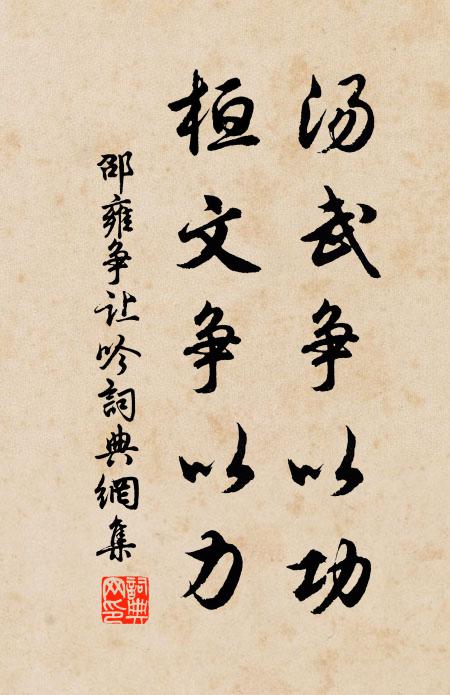 汤武争以功
桓文争以力
邵雍争让吟詞典網集
詞典网印